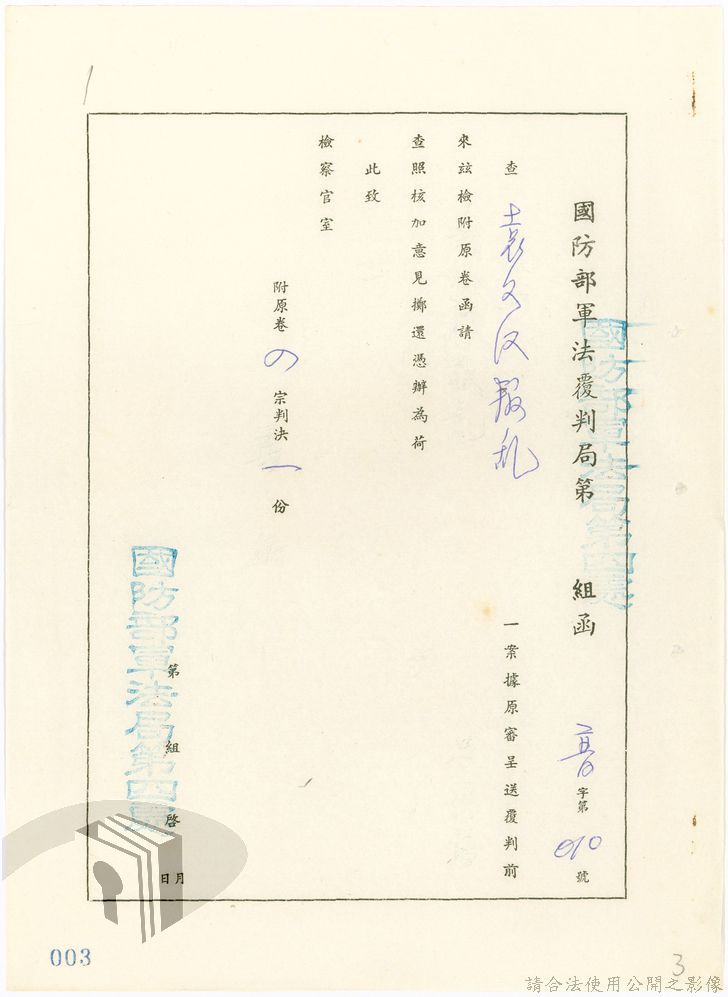 國防部軍法覆判局第 組函 普字第010號
國防部軍法局第四處
查 袁文汉叛乱 一案據原審呈送覆判前
來茲檢附原卷函請
查照核加意見擲還憑辦為荷
此致
檢察官室
附原卷 の 宗判決 一 份
第 組 啓
國防部軍法局第四處
月 日
003
3
請合法使用公開之影像